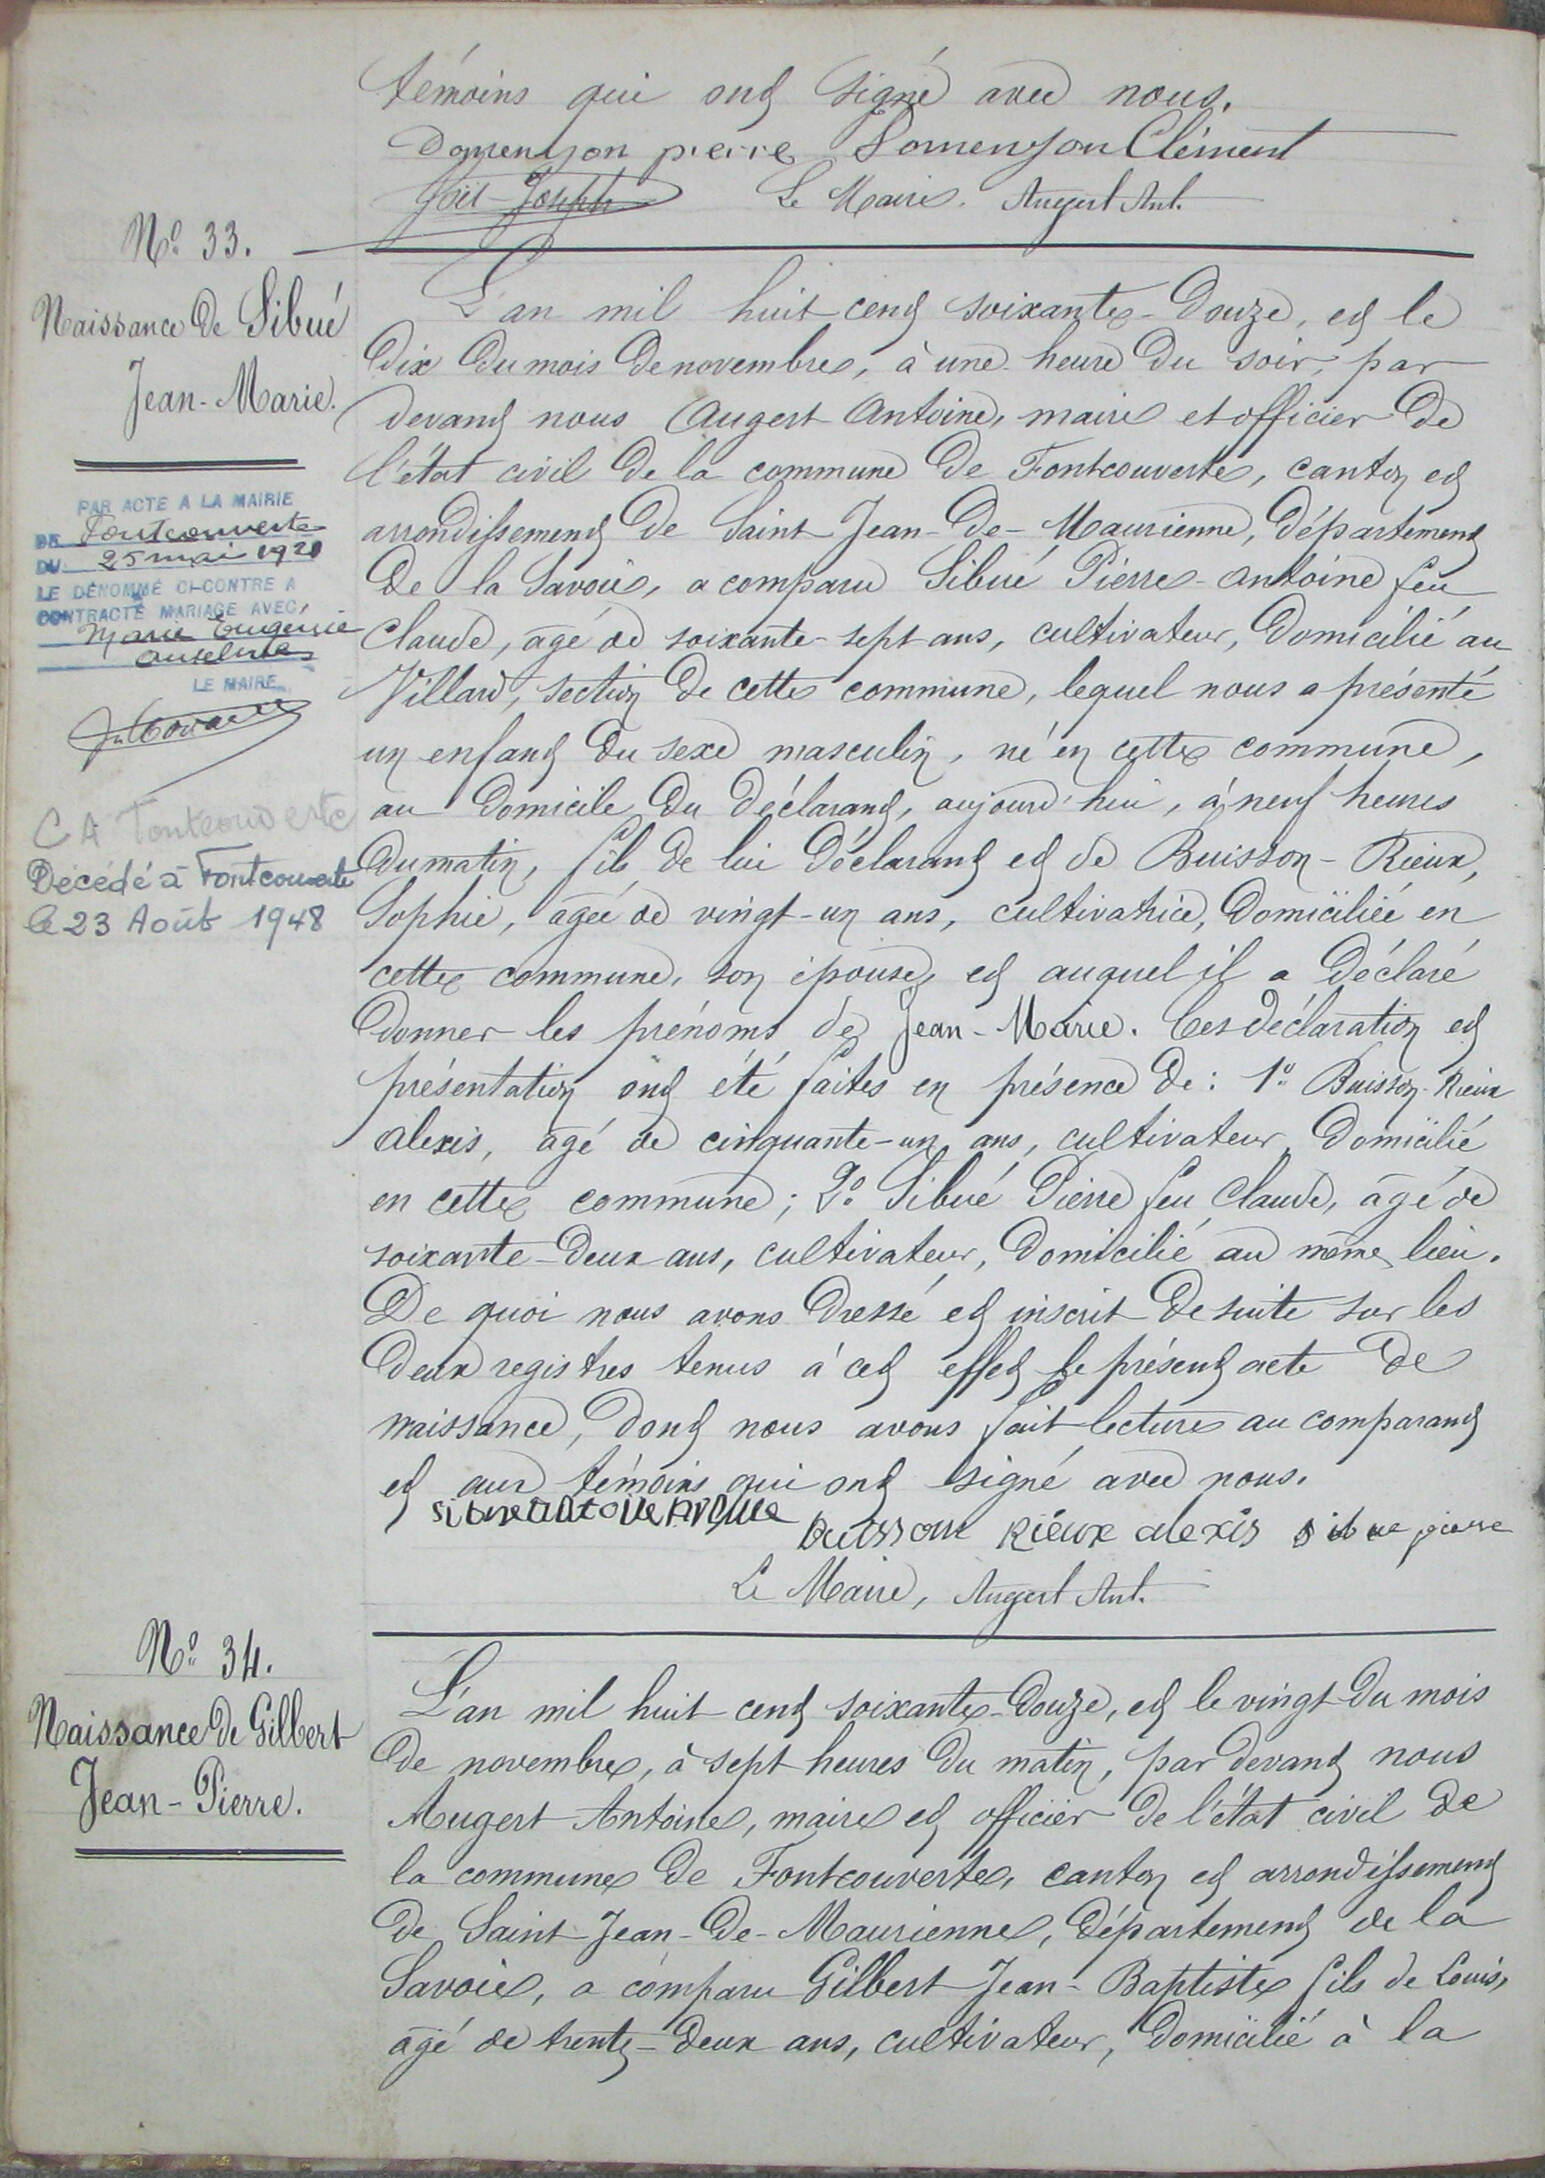 témoins qui ont signé avec nous.
Domenjon pierre Domenjon Clément
Joseph Le Maire. Augert Ant.
N° 33.
Naissance de Sibué
Jean-Marie.
PAR ACTE A LA MAIRIE
DE Fontcouverte
DU 25 mai 1920
LE DÉNOMMÉ CI-CONTRE A
CONTRACTÉ MARIAGE AVEC,
Marie Eugénie
Anselme
LE MAIRE
CA Fontcouverte
Décédé à Fontcouverte
le 23 Août 1948
L'an mil huit cent soixante-douze, et le
dix du mois de novembre, à une heure du soir, par
devant nous Augert Antoine, maire et officier de
l'état civil de la commune de Fontcouverte, canton et
arrondissement de Saint-Jean-de-Maurienne, département
de la Savoie, a comparu Sibué Pierre-Antoine feu
Claude, âgé de soixante-sept ans, cultivateur, domicilié au
Villard, section de cette commune, lequel nous a présenté
un enfant du sexe masculin, né en cette commune,
au domicile du déclarant, aujourd'hui, à neuf heures
du matin, fils de lui déclarant et de Buisson-Rieux,
Sophie, âgée de vingt-un ans, cultivatrice, domiciliée en
cette commune, son épouse, et auquel il a déclaré
donner les prénoms de Jean-Marie. Ces déclaration et
présentation ont été faites en présence de : 1° Buisson-Rieux
Alexis, âgé de cinquante-un ans, cultivateur, domicilié
en cette commune ; 2° Sibué Pierre feu Claude, âgé de
soixante-deux ans, cultivateur, domicilié au même lieu.
De quoi nous avons dressé et inscrit de suite sur les
deux registres tenus à cet effet le présent acte de
naissance, dont nous avons fait lecture au comparant
et aux témoins qui ont signé avec nous.
buisson Rieux alexis sibue pierre
Le Maire, Augert Ant.
N° 34.
Naissance de Gilbert
Jean-Pierre.
L'an mil huit cent soixante-douze, et le vingt du mois
de novembre, à sept heures du matin, par devant nous
Augert Antoine, maire et officier de l'état civil de
la commune de Fontcouverte, canton et arrondissement
de Saint-Jean-de-Maurienne, département de la
Savoie, a comparu Gilbert Jean-Baptiste fils de Louis,
âgé de trente-deux ans, cultivateur, domicilié à la